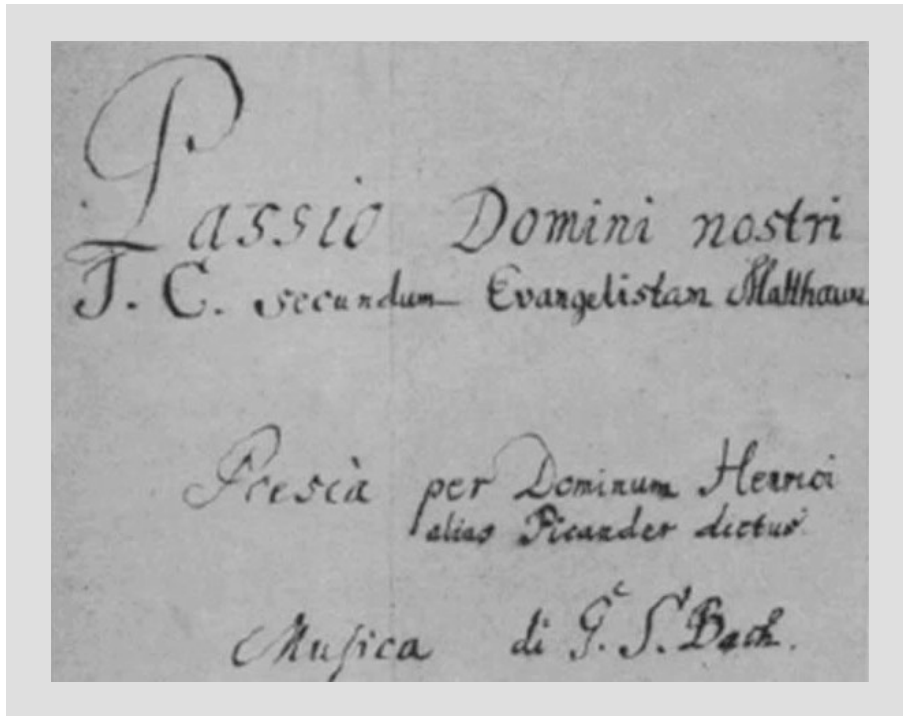 Passio Domini nostri
J. C. secundum Evangelistam Matthæum
Poesia per Dominum Henrici
alias Picander dictus
Musica di G. S. Bach.